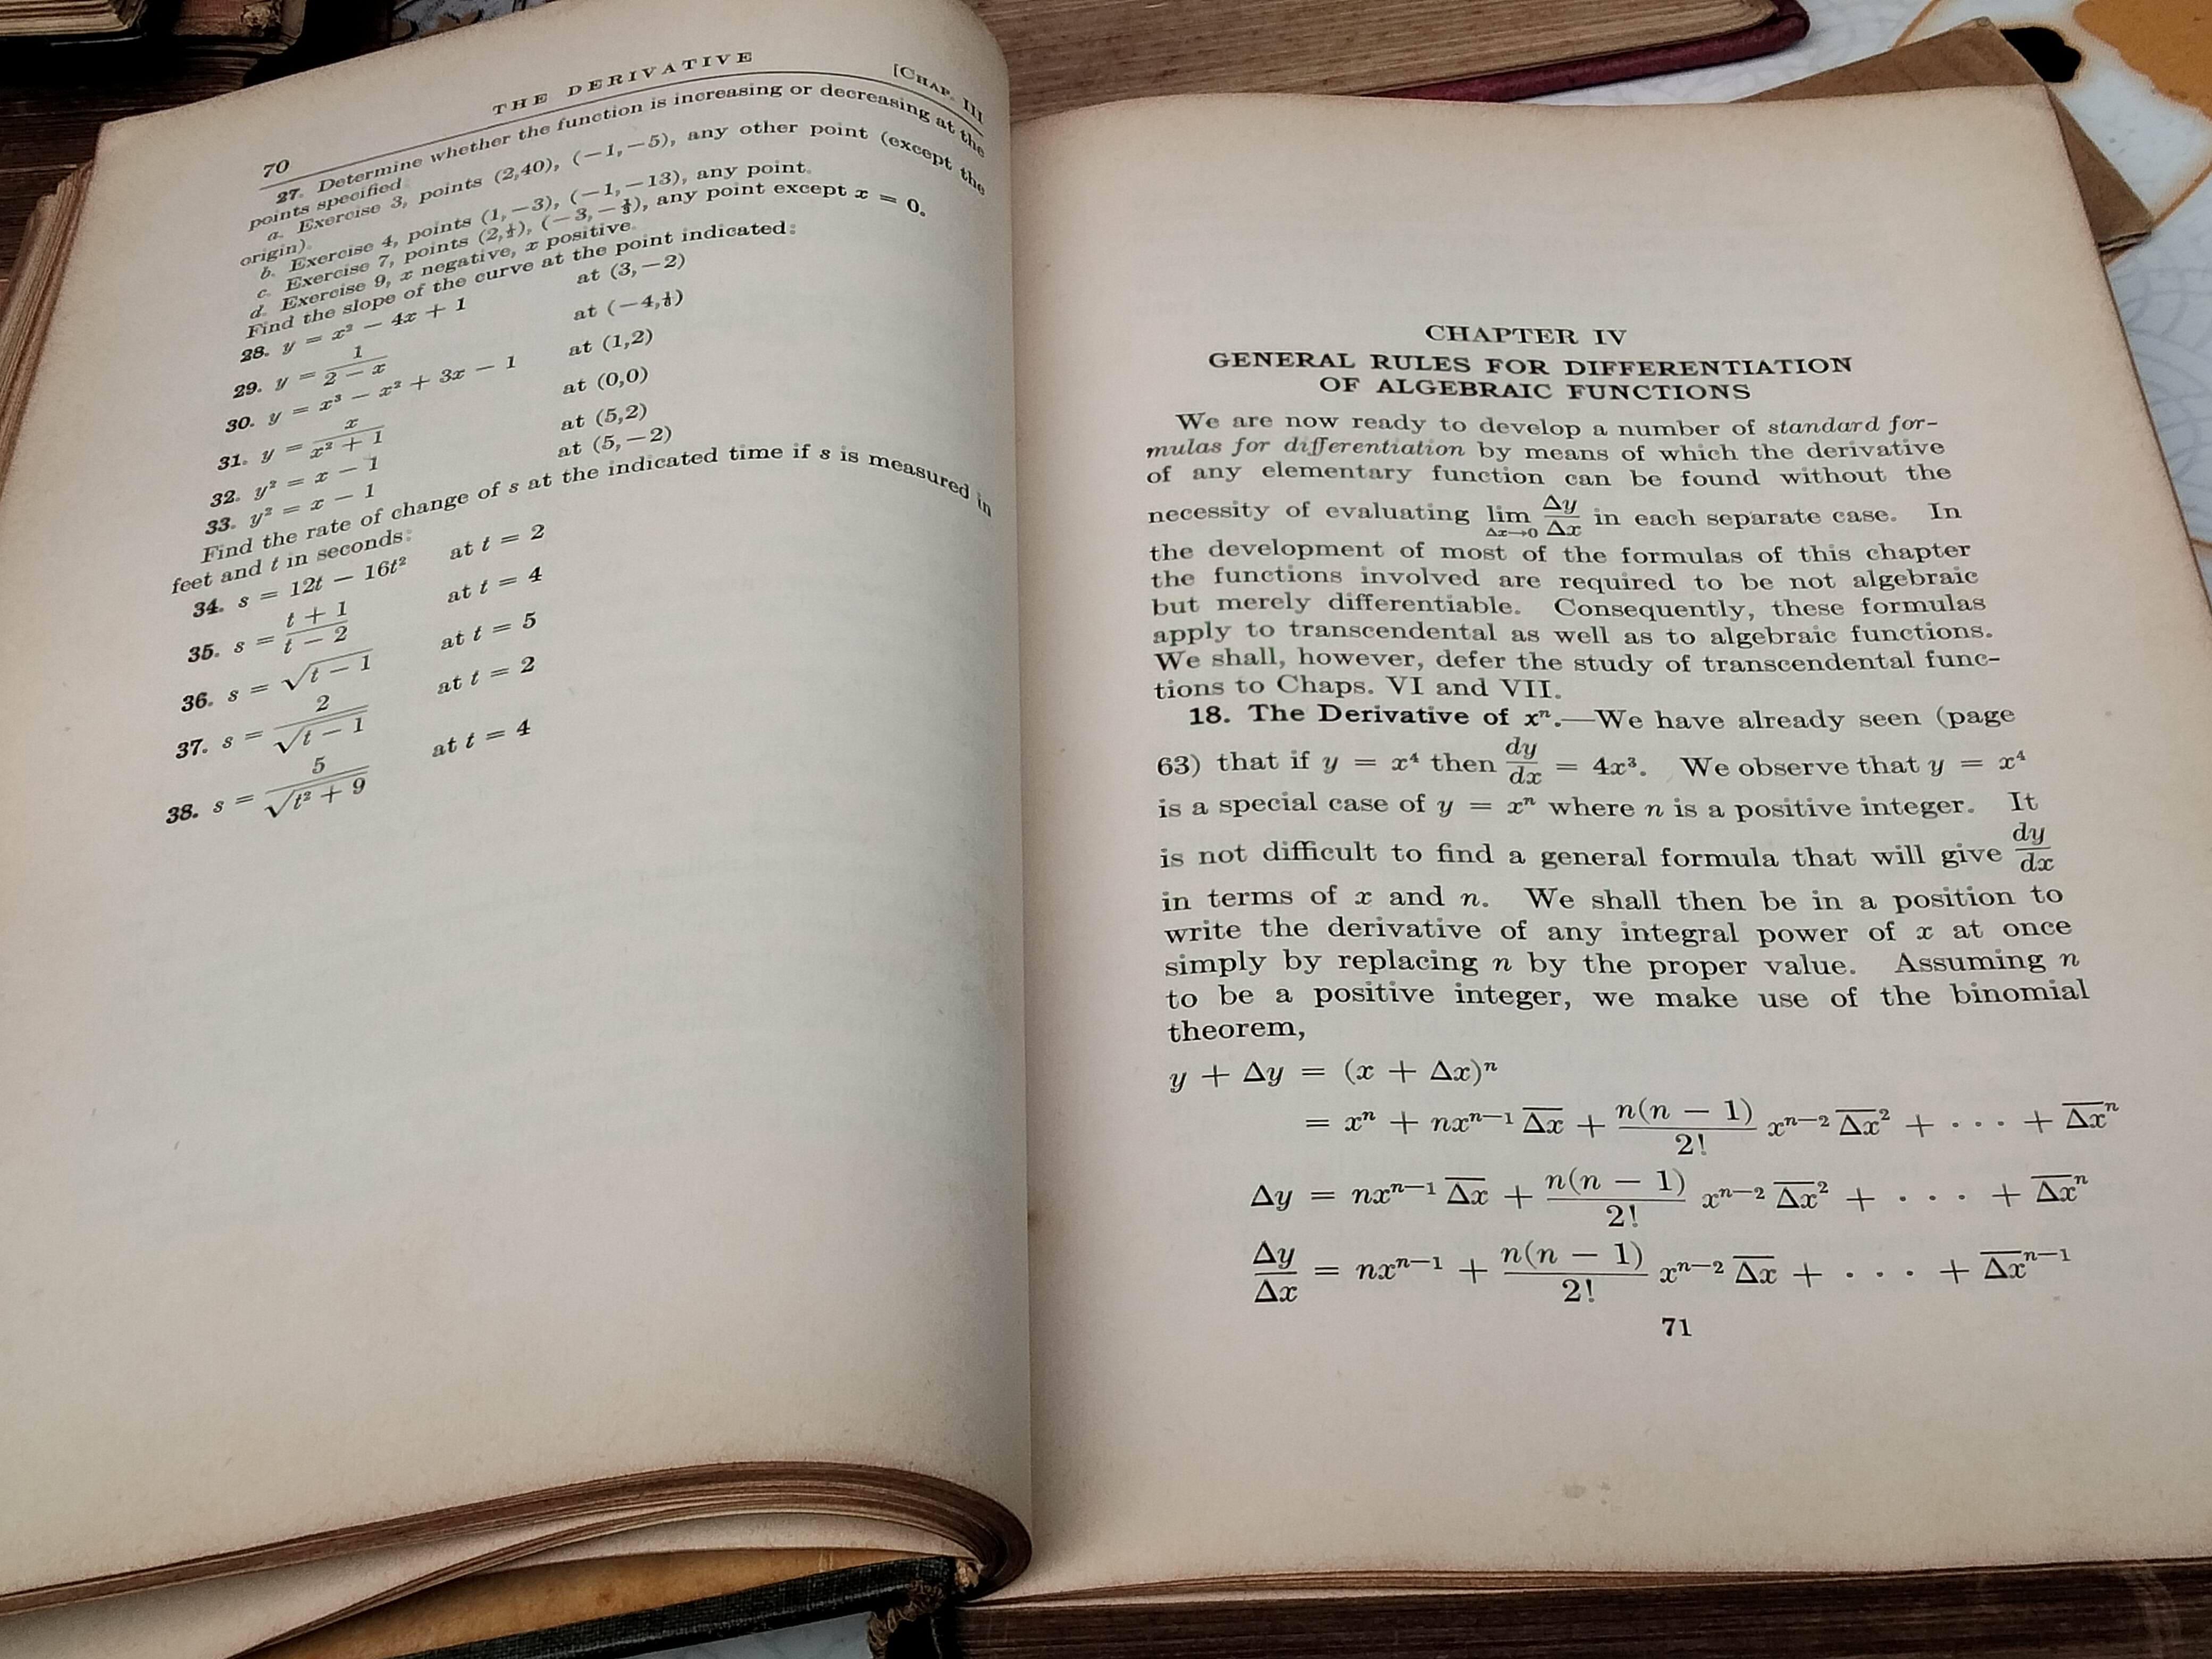 70 THE DERIVATIVE [CHAP. III
27. Determine whether the function is increasing or decreasing at the
points specified.
a. Exercise 3, points (2,40), (−1,−5), any other point (except the
origin).
b. Exercise 4, points (1,−3), (−1,−13), any point.
c. Exercise 7, points (2,½), (−3,−⅓), any point except x = 0.
d. Exercise 9, x negative, x positive.
Find the slope of the curve at the point indicated:
28. y = x² − 4x + 1 at (3,−2)
29. y = 1/(2 − x) at (−4,⅙)
30. y = x³ − x² + 3x − 1 at (1,2)
31. y = x/(x² + 1) at (0,0)
32. y² = x − 1 at (5,2)
33. y² = x − 1 at (5,−2)
Find the rate of change of s at the indicated time if s is measured in
feet and t in seconds:
34. s = 12t − 16t² at t = 2
35. s = (t + 1)/(t − 2) at t = 4
36. s = √(t − 1) at t = 5
37. s = 2/√(t − 1) at t = 2
38. s = 5/√(t² + 9) at t = 4
CHAPTER IV
GENERAL RULES FOR DIFFERENTIATION
OF ALGEBRAIC FUNCTIONS
We are now ready to develop a number of standard for-
mulas for differentiation by means of which the derivative
of any elementary function can be found without the
necessity of evaluating lim Δx→0 Δy/Δx in each separate case. In
the development of most of the formulas of this chapter
the functions involved are required to be not algebraic
but merely differentiable. Consequently, these formulas
apply to transcendental as well as to algebraic functions.
We shall, however, defer the study of transcendental func-
tions to Chaps. VI and VII.
18. The Derivative of xⁿ.—We have already seen (page
63) that if y = x⁴ then dy/dx = 4x³. We observe that y = x⁴
is a special case of y = xⁿ where n is a positive integer. It
is not difficult to find a general formula that will give dy/dx
in terms of x and n. We shall then be in a position to
write the derivative of any integral power of x at once
simply by replacing n by the proper value. Assuming n
to be a positive integer, we make use of the binomial
theorem,
y + Δy = (x + Δx)ⁿ
= xⁿ + nxⁿ⁻¹ Δx + n(n − 1)/2! xⁿ⁻² Δx² + · · · + Δxⁿ
Δy = nxⁿ⁻¹ Δx + n(n − 1)/2! xⁿ⁻² Δx² + · · · + Δxⁿ
Δy/Δx = nxⁿ⁻¹ + n(n − 1)/2! xⁿ⁻² Δx + · · · + Δxⁿ⁻¹
71